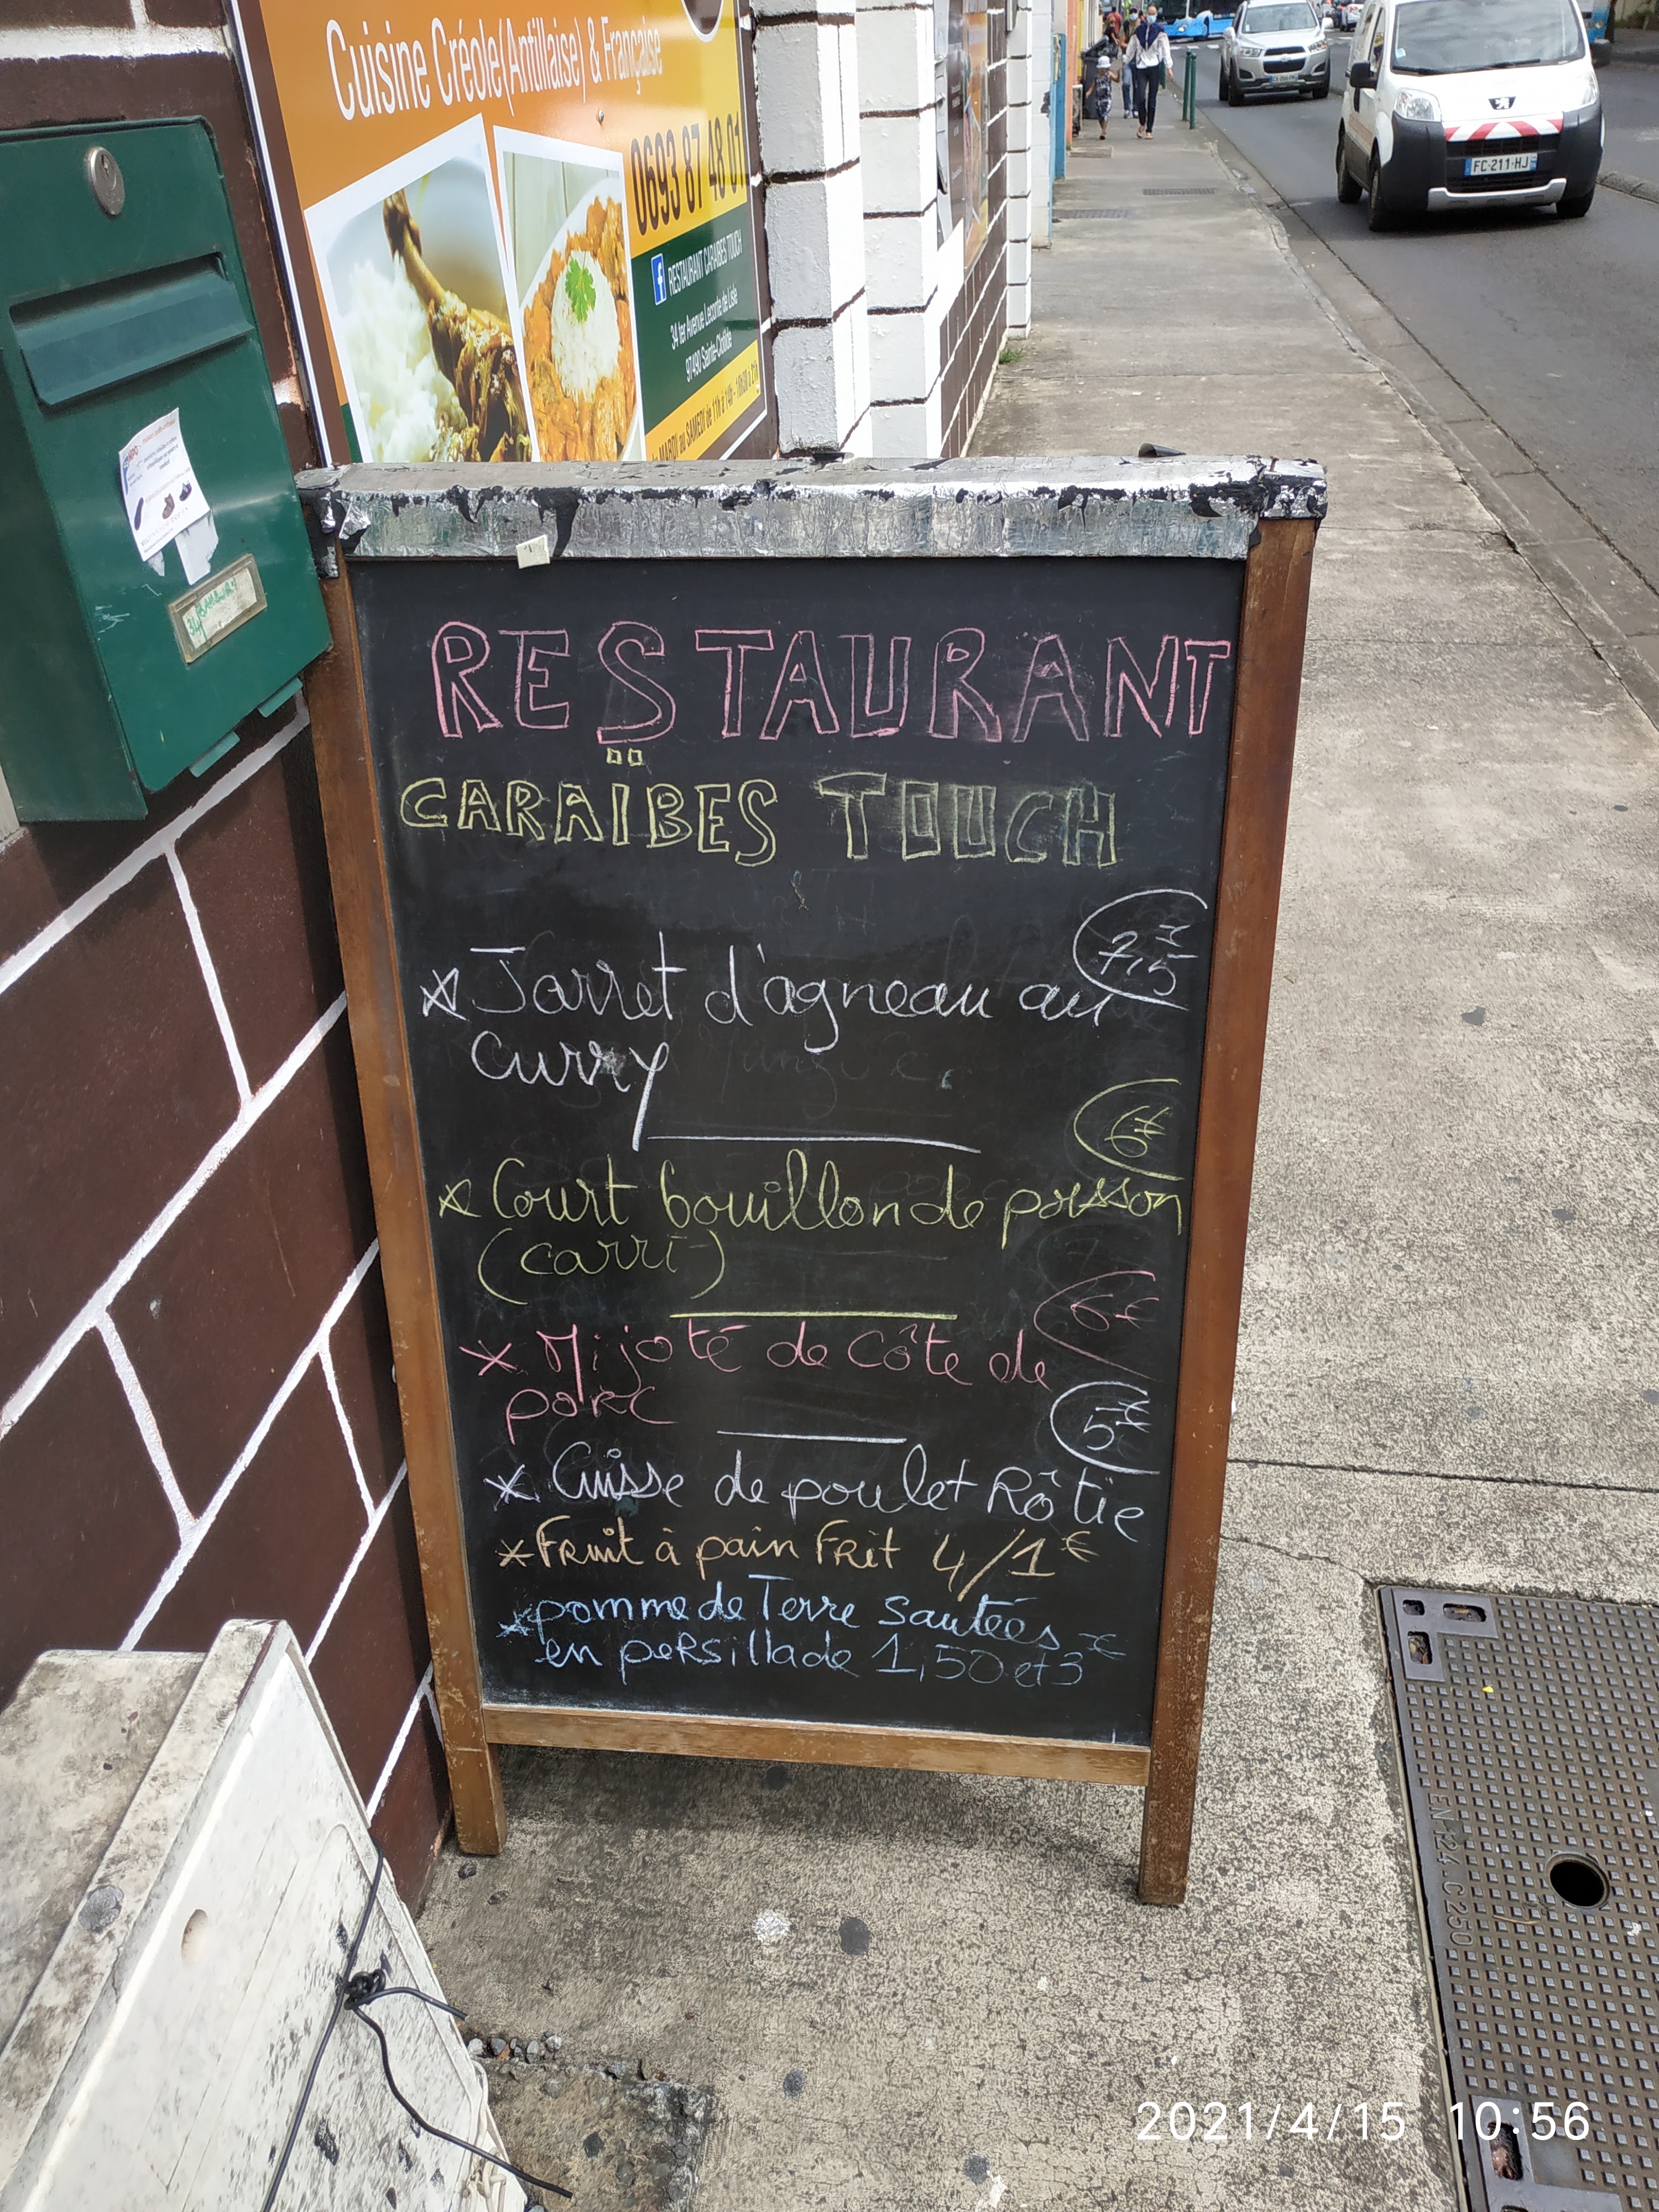 Cuisine Créole (Antillaise) & Française
0693 87 48 01
RESTAURANT CARAIBES TOUCH
34 ter Avenue Leconte de Lisle
97490 Sainte-Clotilde
MARDI au SAMEDI de 11h à 14h
FC-211-HJ
RESTAURANT
CARAÏBES TOUCH
7,5€
* Jarret d'agneau au
curry
6€
* Court bouillon de poisson
(carri)
6€
* Mijoté de Côte de
porc
5€
* Cuisse de poulet Rôtie
* Fruit à pain Frit 4/1€
* pomme de Terre Sautées
en persillade 1,50 et 3€
EN 124 C250
2021/4/15 10:56